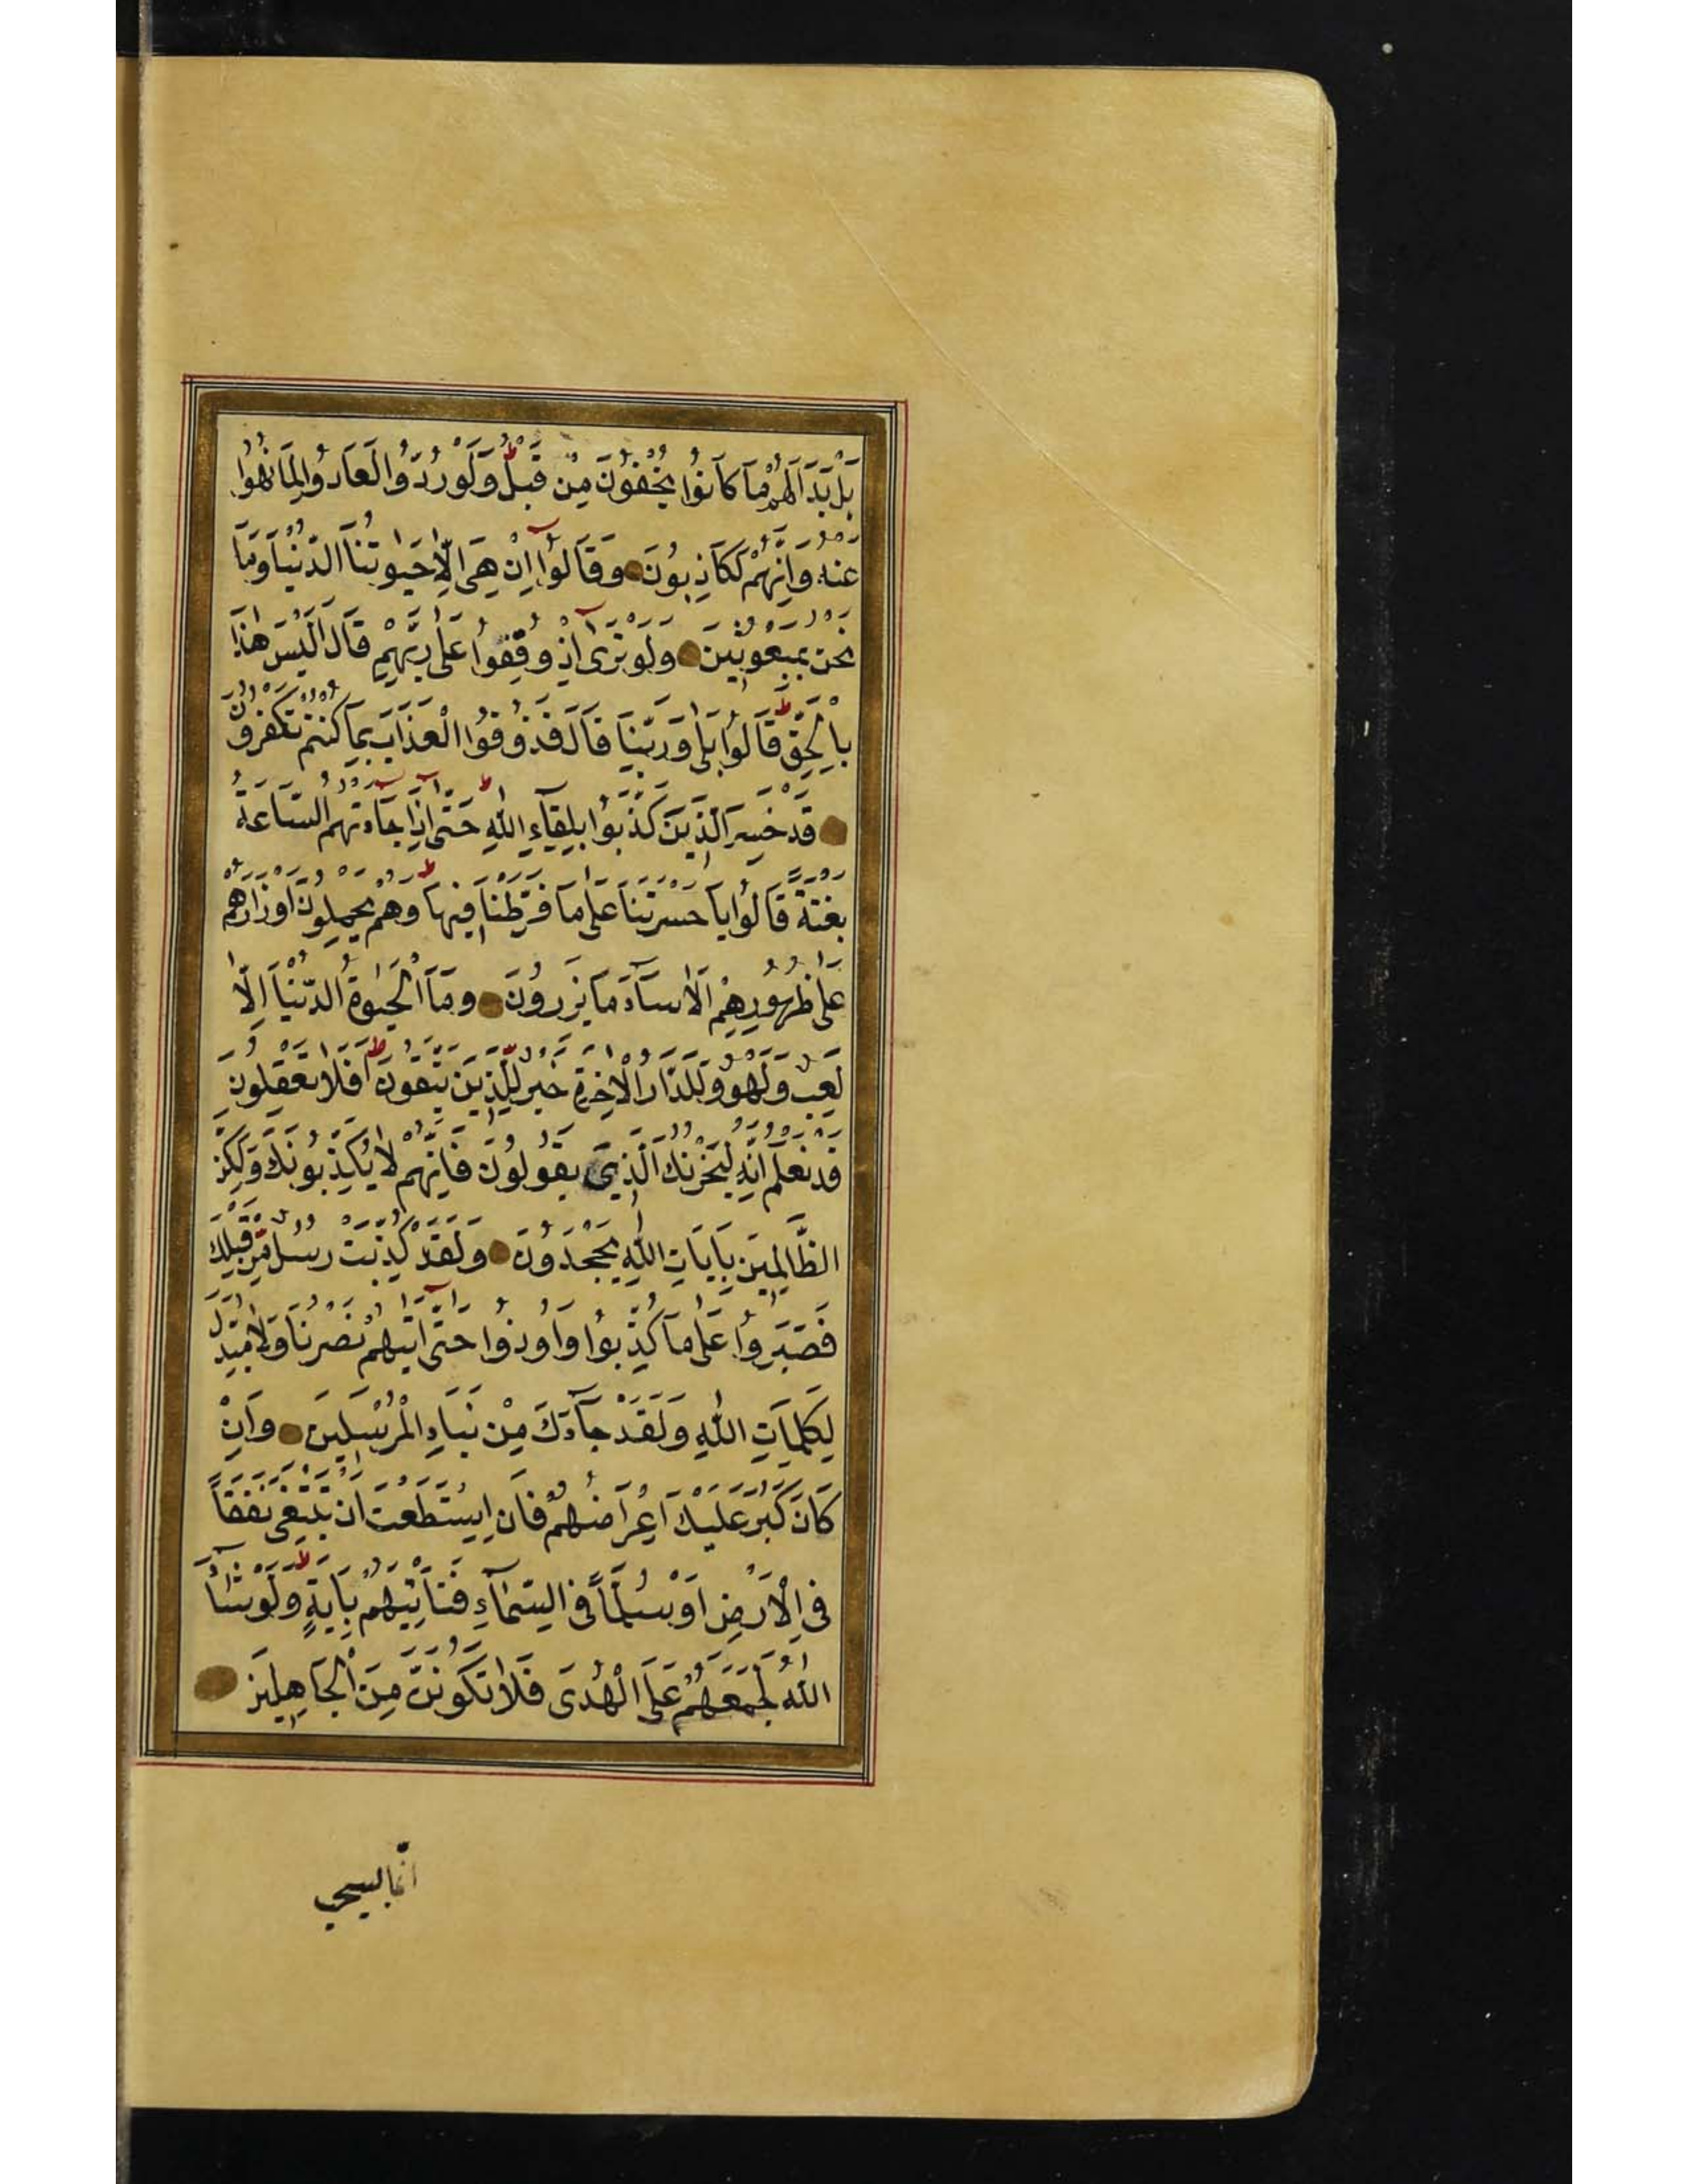 بَلْ بَدَا لَهُمْ مَا كَانُوا يُخْفُونَ مِنْ قَبْلُ ط وَلَوْ رُدُّوا لَعَادُوا لِمَا نُهُوا
عَنْهُ وَاِنَّهُمْ لَكَاذِبُونَ وَقَالُوا اِنْ هِيَ اِلَّا حَيٰوتُنَا الدُّنْيَا وَمَا
نَحْنُ بِمَبْعُوثِينَ وَلَوْ تَرٰى اِذْ وُقِفُوا عَلٰى رَبِّهِمْ قَالَ اَلَيْسَ هٰذَا
بِالْحَقِّ ط قَالُوا بَلٰى وَرَبِّنَا قَالَ فَذُوقُوا الْعَذَابَ بِمَا كُنْتُمْ تَكْفُرُونَ
قَدْ خَسِرَ الَّذِينَ كَذَّبُوا بِلِقَاءِ اللّٰهِ ط حَتّٰى اِذَا جَاءَتْهُمُ السَّاعَةُ
بَغْتَةً قَالُوا يَا حَسْرَتَنَا عَلٰى مَا فَرَّطْنَا فِيهَا ط وَهُمْ يَحْمِلُونَ اَوْزَارَهُمْ
عَلٰى ظُهُورِهِمْ اَلَا سَاءَ مَا يَزِرُونَ وَمَا الْحَيٰوةُ الدُّنْيَا اِلَّا
لَعِبٌ وَلَهْوٌ وَلَلدَّارُ الْاٰخِرَةُ خَيْرٌ لِلَّذِينَ يَتَّقُونَ ط اَفَلَا تَعْقِلُونَ
قَدْ نَعْلَمُ اِنَّهُ لَيَحْزُنُكَ الَّذِي يَقُولُونَ فَاِنَّهُمْ لَا يُكَذِّبُونَكَ وَلٰكِنَّ
الظَّالِمِينَ بِاٰيَاتِ اللّٰهِ يَجْحَدُونَ وَلَقَدْ كُذِّبَتْ رُسُلٌ مِنْ قَبْلِكَ
فَصَبَرُوا عَلٰى مَا كُذِّبُوا وَاُوذُوا حَتّٰى اَتٰيهُمْ نَصْرُنَا وَلَا مُبَدِّلَ
لِكَلِمَاتِ اللّٰهِ وَلَقَدْ جَاءَكَ مِنْ نَبَاءِ الْمُرْسَلِينَ وَاِنْ
كَانَ كَبُرَ عَلَيْكَ اِعْرَاضُهُمْ فَاِنِ اسْتَطَعْتَ اَنْ تَبْتَغِيَ نَفَقًا
فِي الْاَرْضِ اَوْ سُلَّمًا فِي السَّمَاءِ فَتَأْتِيَهُمْ بِاٰيَةٍ ط وَلَوْ شَاءَ
اللّٰهُ لَجَمَعَهُمْ عَلَى الْهُدٰى فَلَا تَكُونَنَّ مِنَ الْجَاهِلِينَ
انّما يستجيب